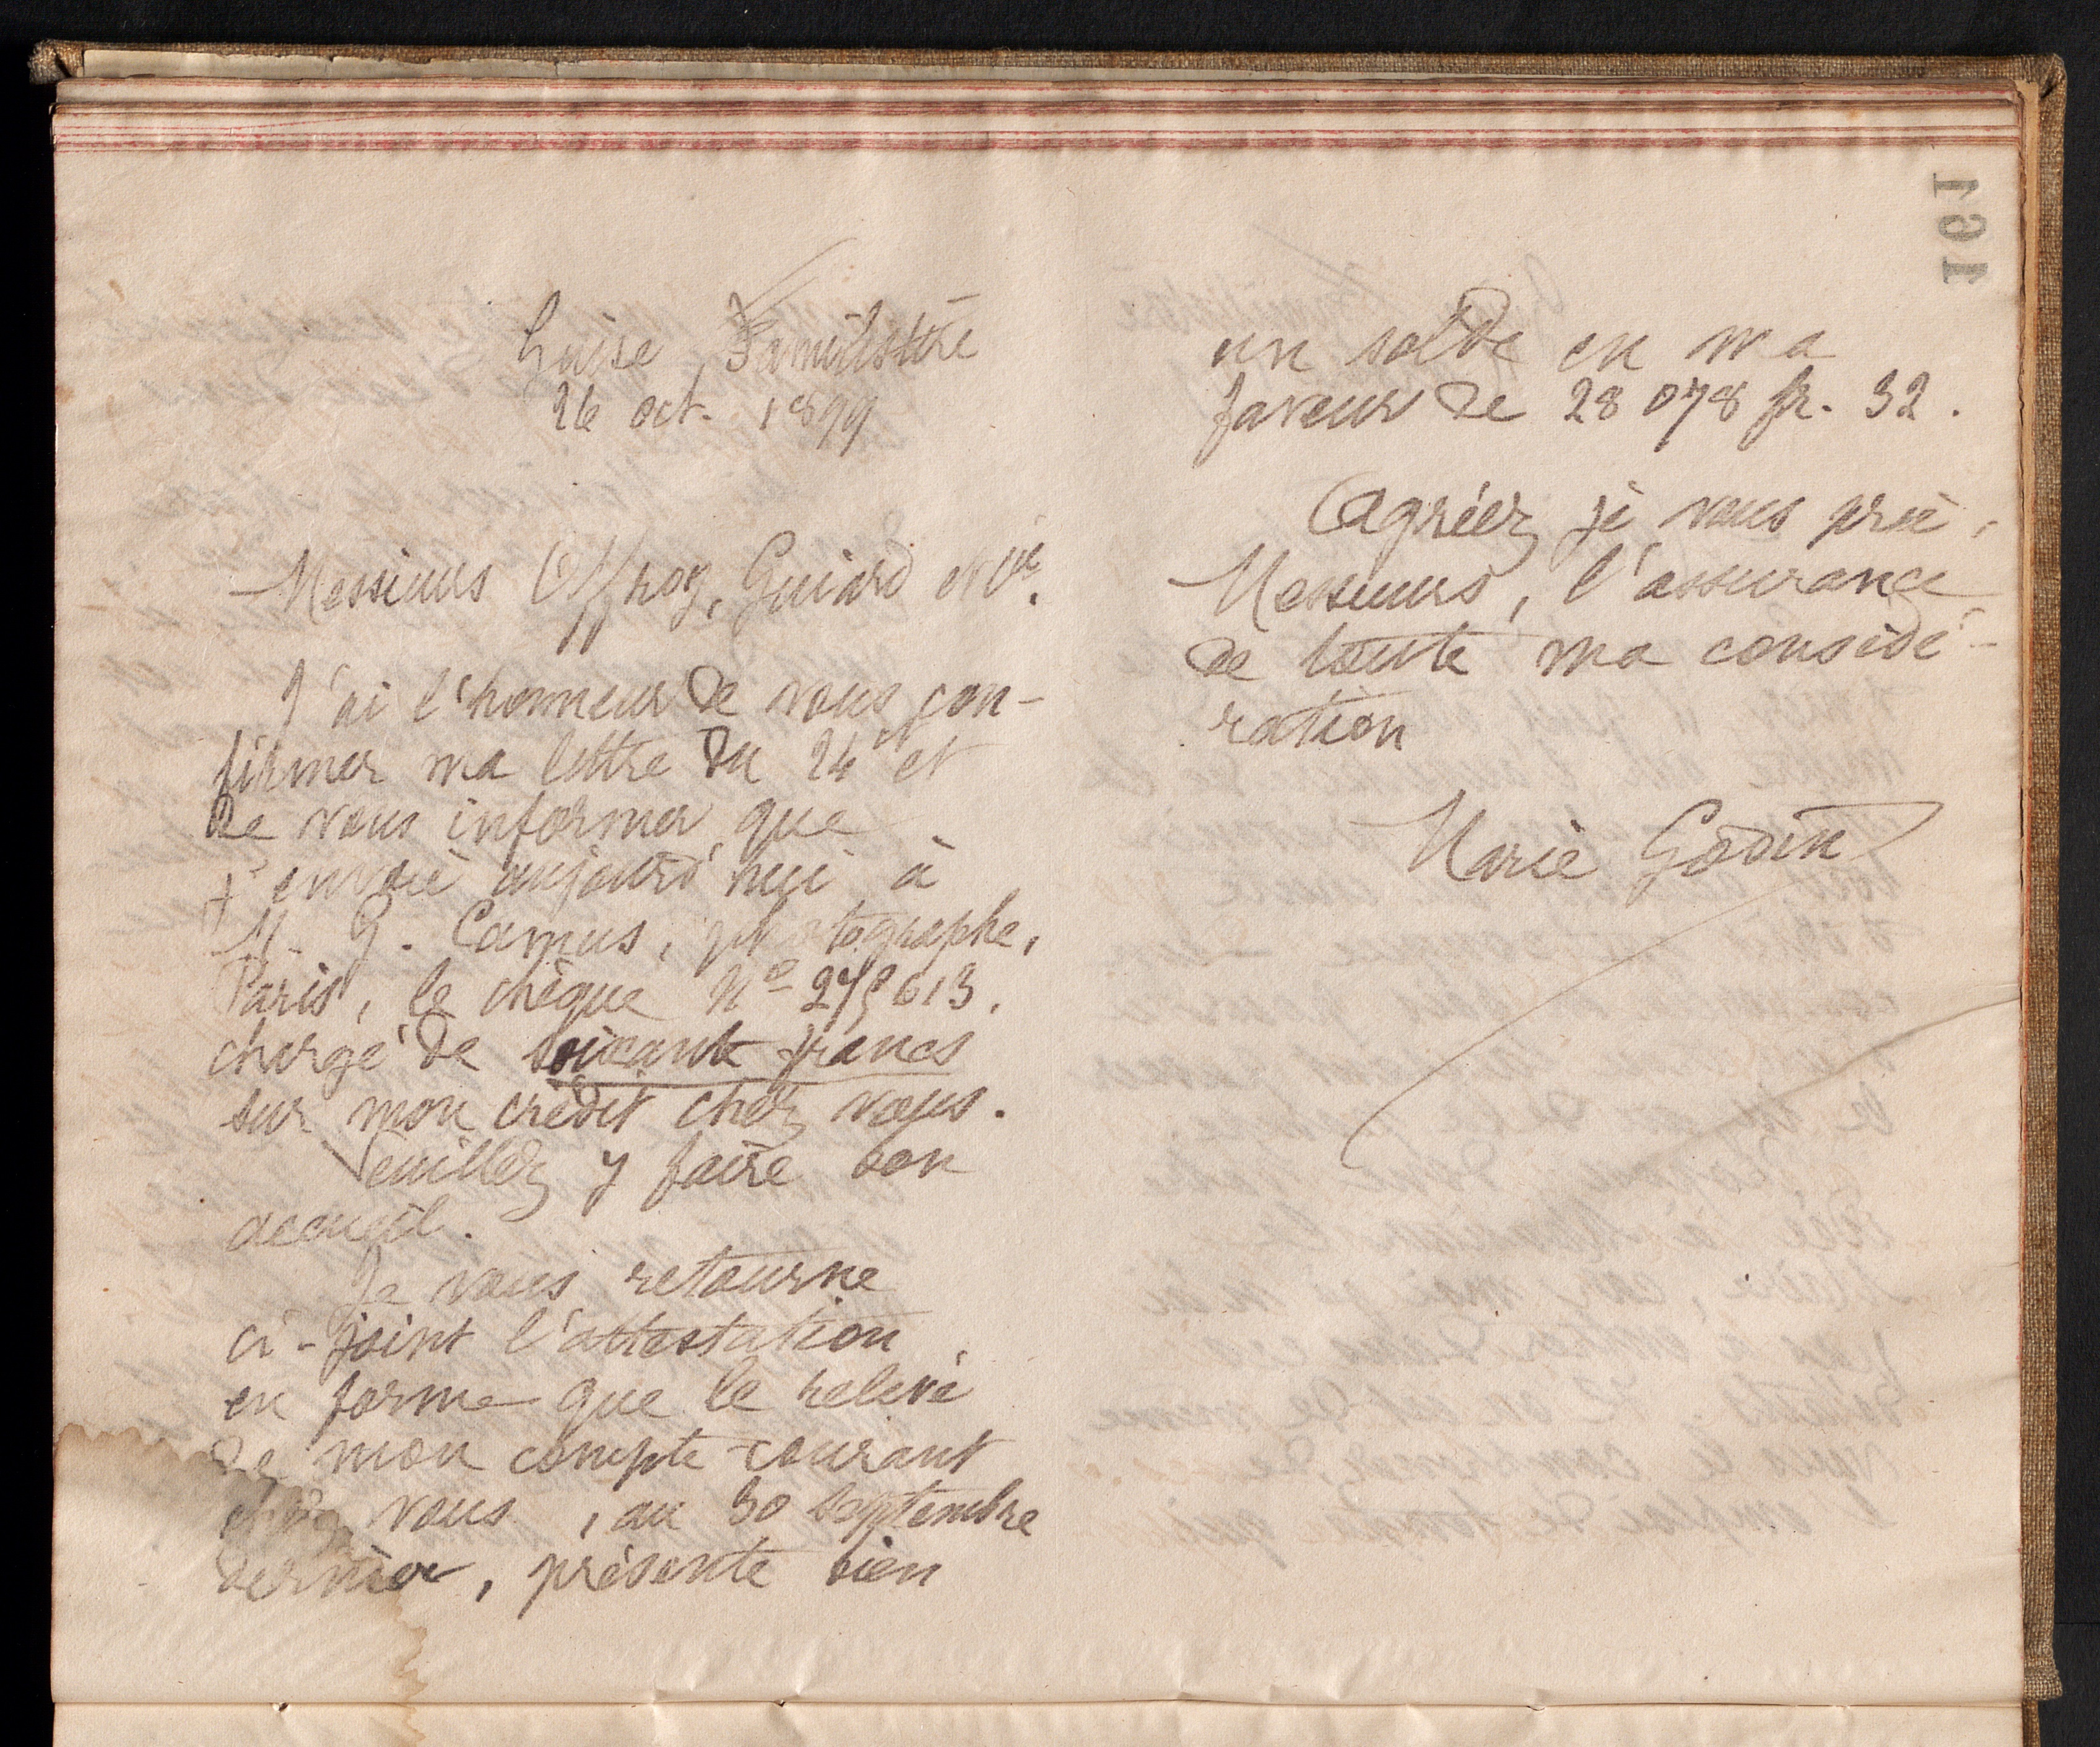 Guise Familistère
26 oct. 1899
Messieurs Offroy, Guiard et Cie.
J'ai l'honneur de vous con-
firmer ma lettre du 24 et
de vous informer que
j'envoie aujourd'hui à
M. G. Camus, photographe,
Paris, le chèque No 275613.
chargé de soixante francs
sur mon crédit chez vous.
Veuillez y faire bon
accueil.
Je vous retourne
ci-joint l'attestation
en forme que le relevé
de mon compte-courant
chez vous, au 30 septembre
dernier, présente bien
un solde en ma
faveur de 28 078 fr. 32.
Agréez je vous prie,
Messieurs, l'assurance
de toute ma considé-
ration
Marie Godin
191